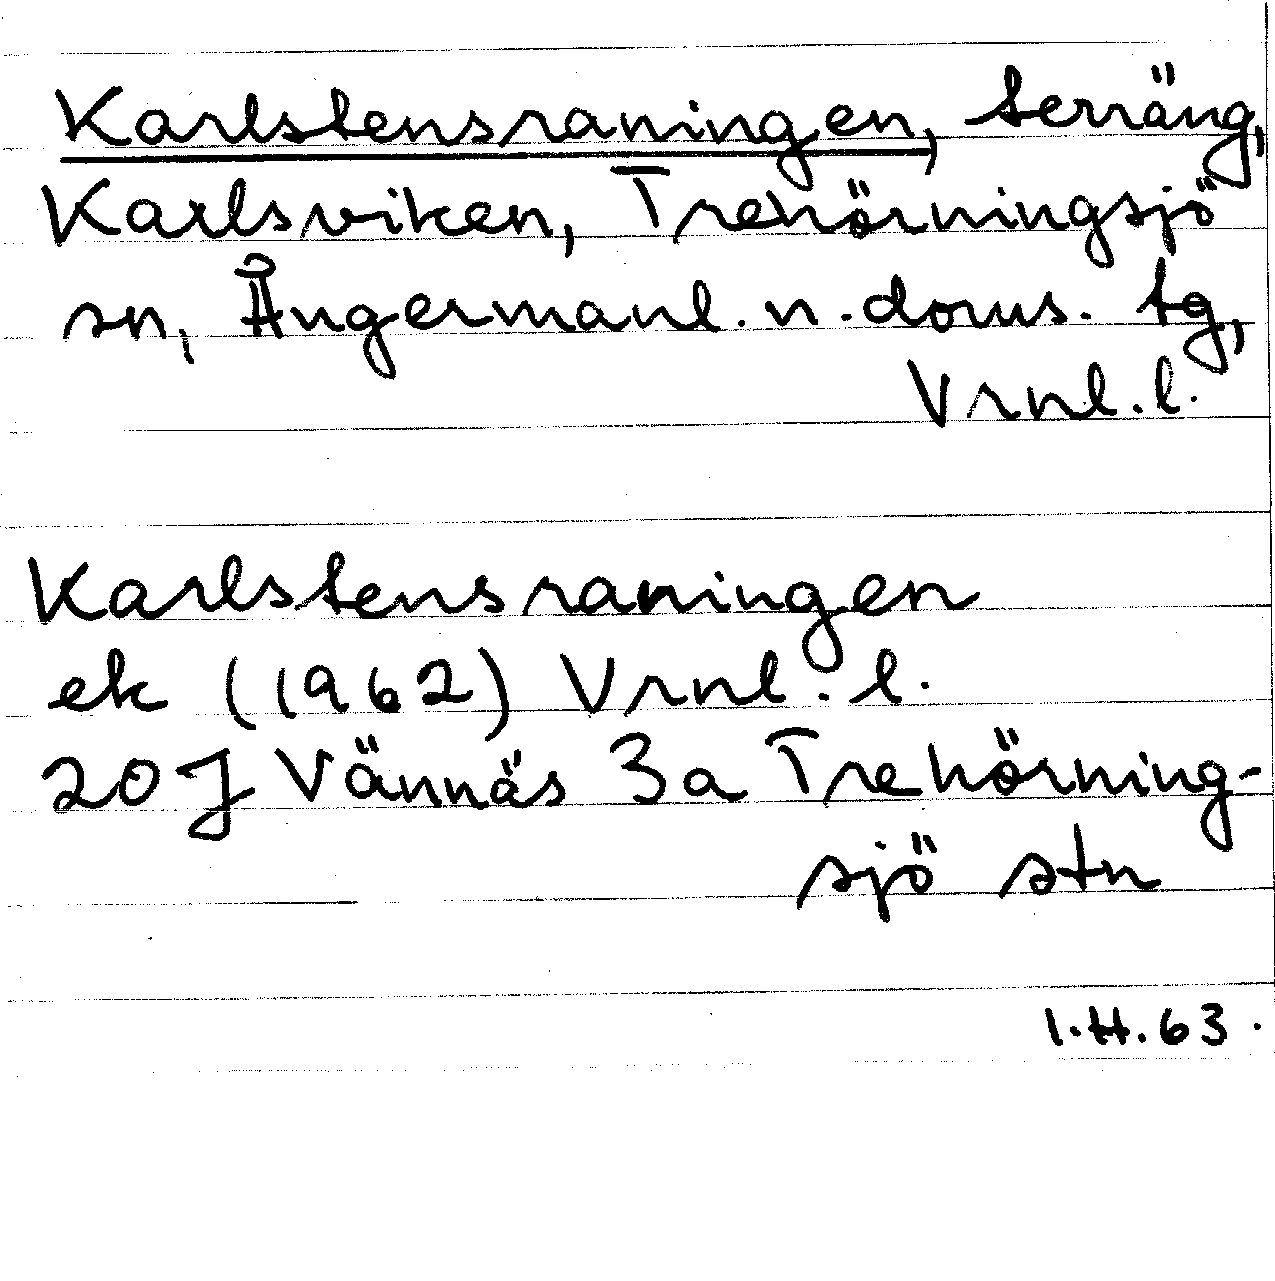 Karlstensraningen, terräng,
Karlsviken, Trehörningsjö
sn, Ångermanl. n. doms. tg,
Vrnl. l.
Karlstensraningen
ek (1962) Vrnl. l.
20 J Vännäs 3a Trehörning-
sjö stn
1.H.63.